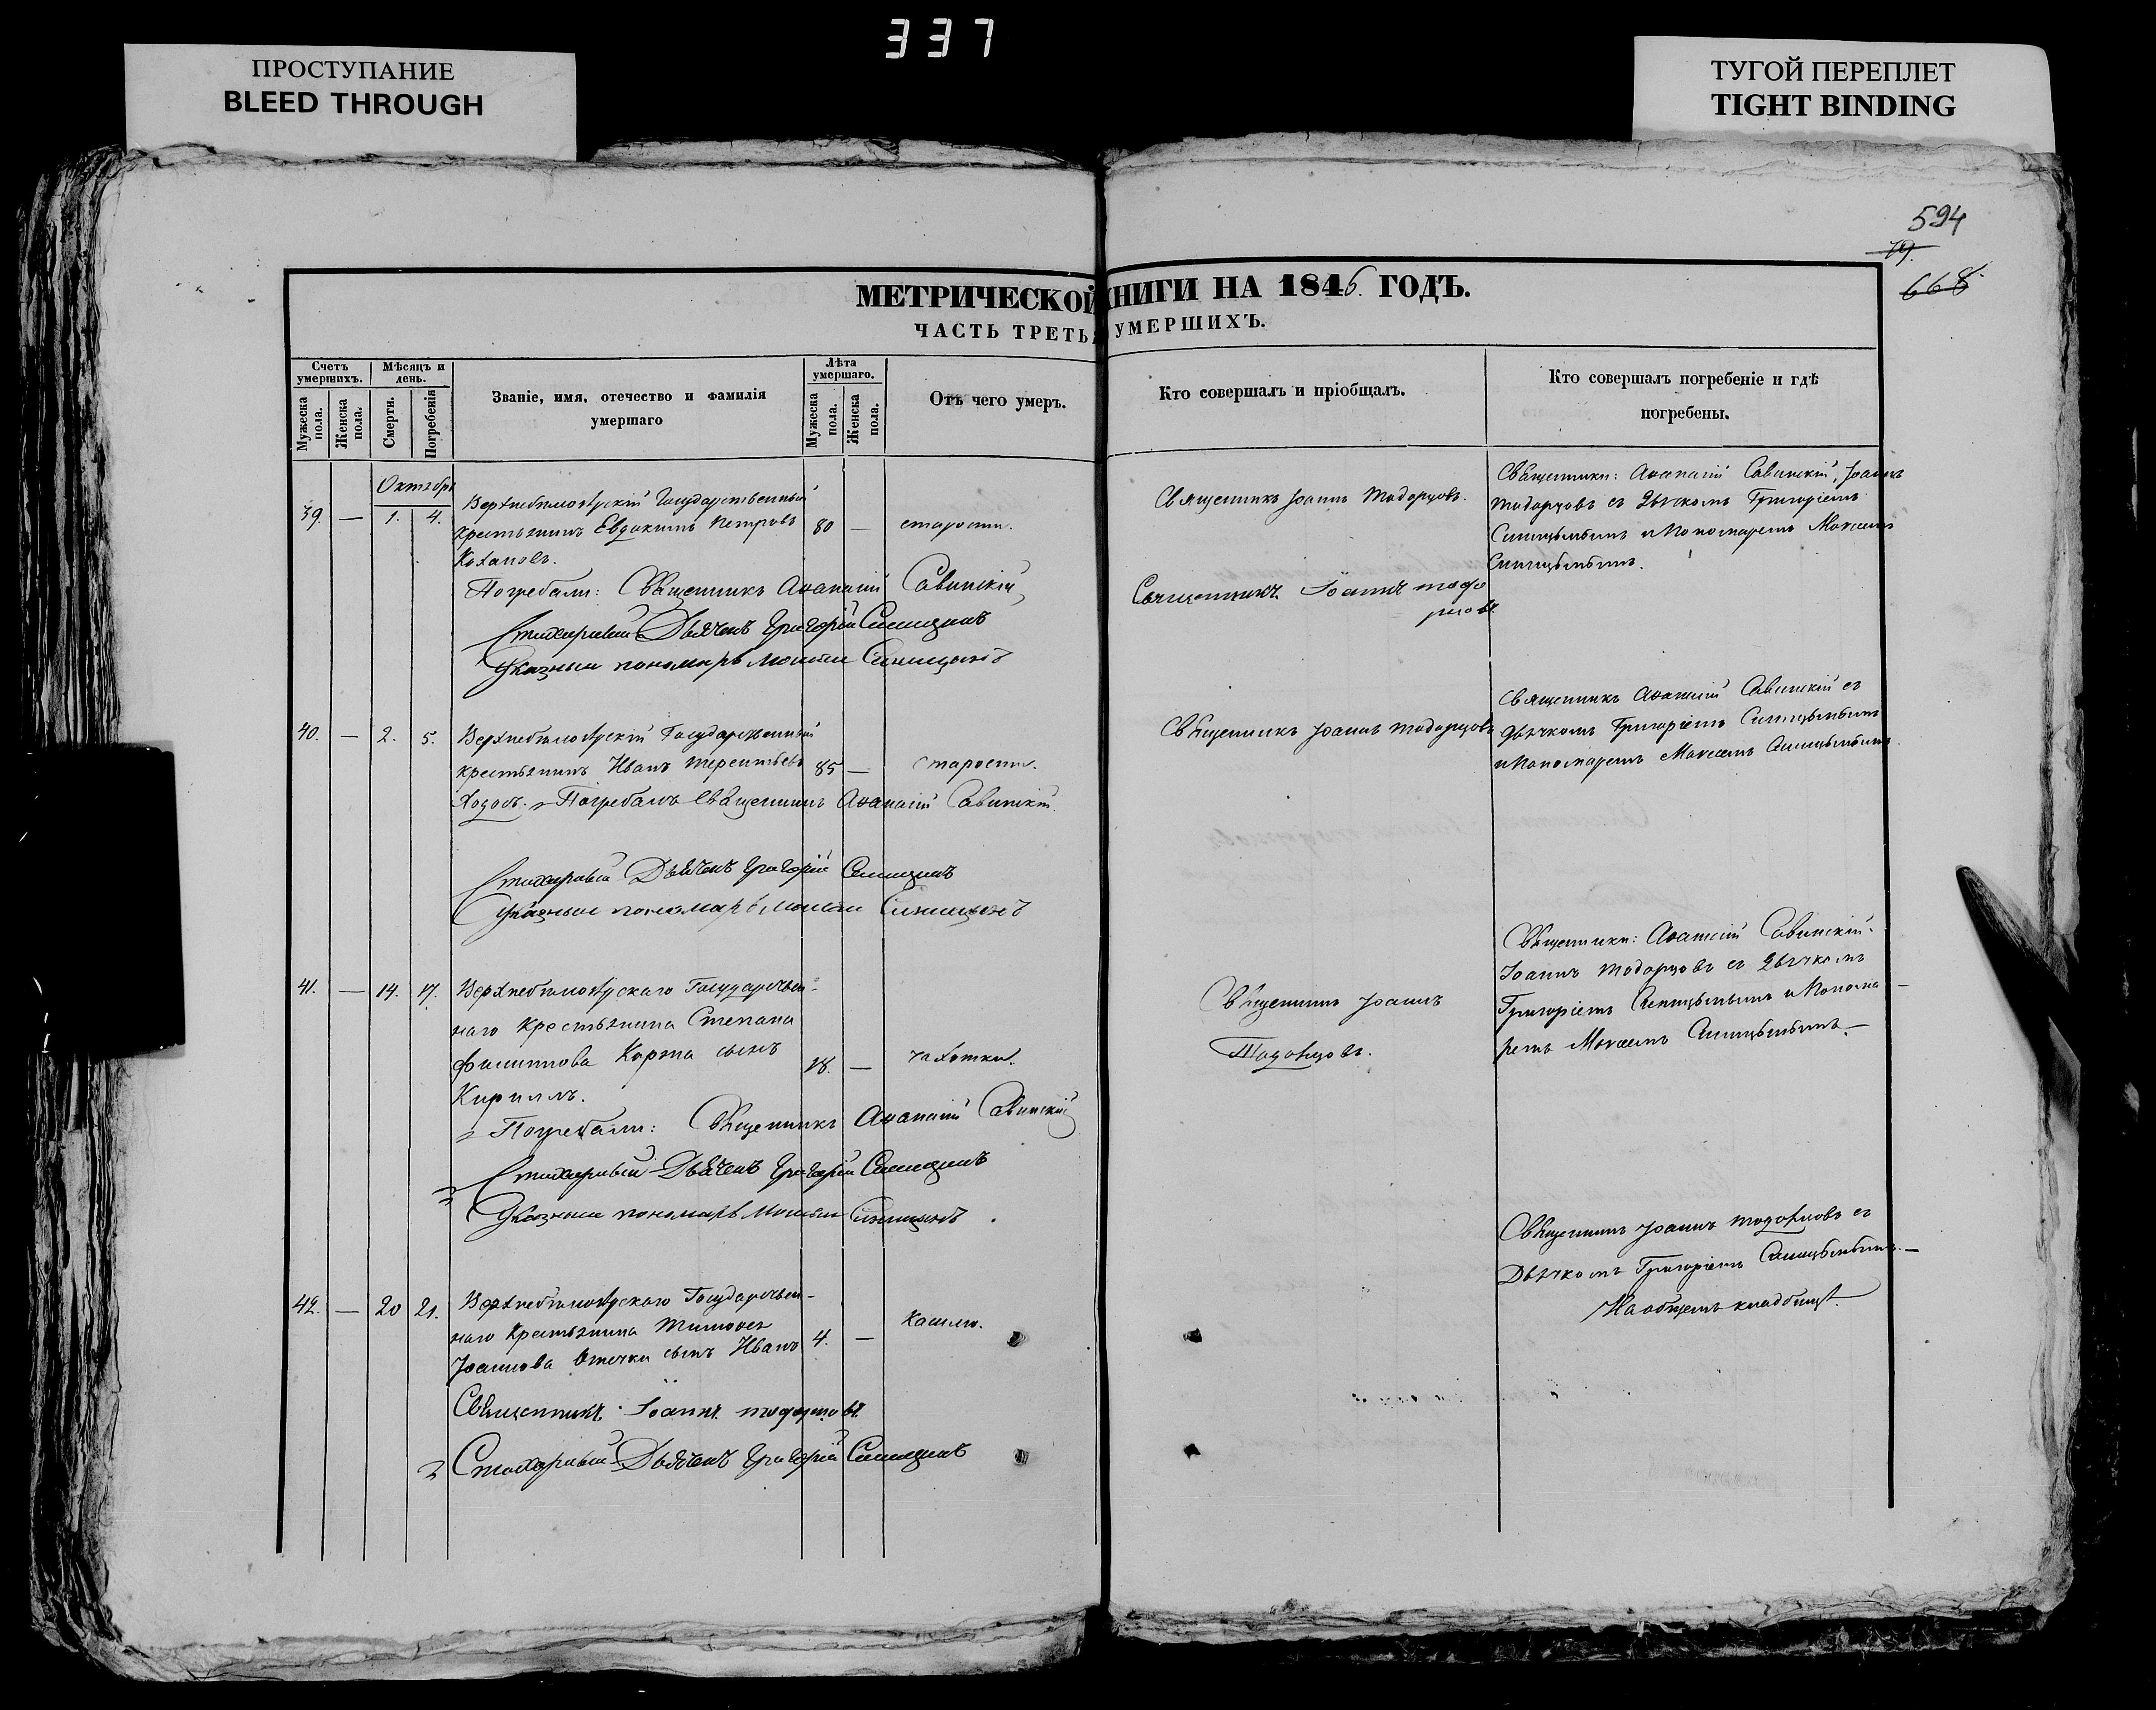 337
ПРОСТУПАНИЕ
BLEED THROUGH
ТУГОЙ ПЕРЕПЛЕТ
TIGHT BINDING
594
79.
668
МЕТРИЧЕСКОЙ КНИГИ НА 1846. ГОДЪ.
ЧАСТЬ ТРЕТЬЯ УМЕРШИХЪ.
Счетъ умершихъ.
Мужеска пола.
Женска пола.
Мѣсяцъ и день.
Смерти.
Погребенія
Званіе, имя, отечество и фамилія
умершаго
Лѣта умершаго.
Мужеска пола.
Женска пола.
Отъ чего умеръ.
Кто совершалъ и пріобщалъ.
Кто совершалъ погребеніе и гдѣ
погребены.
Октябрь
39. — 1. 4.
Государственный
крестьянинъ Евдокимъ Петровъ 80 — старости.
Кохановъ.
Священникъ Іоаннъ Тодорцовъ.
Священники: Аѳанасій Савинскій, Іоаннъ
Тодорцовъ съ Дьячкомъ Григоріемъ
Синицынымъ и Пономаремъ Моисеемъ
Синицынымъ.
Погребали: Священникъ Аѳанасій Савинскій
Стихарный Дьячекъ Григорій Синицинъ
Указный пономарь Моисей Синицынъ
Священникъ Іоаннъ Тодо
рцовъ
40. — 2. 5.
Государственный
крестьянинъ Иванъ Терентьевъ 85 — старости.
Погребалъ Священникъ Аѳанасій Савинскій.
Священникъ Іоаннъ Тодорцовъ
Священникъ Аѳанасій Савинскій съ
Дьячкомъ Григоріемъ Синицынымъ
и Пономаремъ Моисеемъ Синицынымъ.
Стихарный Дьячекъ Григорій Синицинъ
Указный пономарь Моисей Синицынъ
41. — 14. 17.
Государствен-
наго Крестьянина Степана
Филиппова Коржа сынъ
Кириллъ.
18. — чахотки.
Священникъ Іоаннъ
Тодорцовъ.
Священники: Аѳанасій Савинскій.
Іоаннъ Тодорцовъ съ Дьячкомъ
Григоріемъ Синицынымъ и Понома-
ремъ Моисеемъ Синицынымъ. —
Погребали: Священникъ Аѳанасій Савинскій
Стихарный Дьячекъ Григорій Синицинъ
Указный пономарь Моисей Синицынъ.
42. — 20 21.
Государствен-
наго Крестьянина Тимоѳея
Іоаннова сынъ Иванъ 4. — Кашлю.
Священникъ Іоаннъ Тодорцовъ съ
Дьячкомъ Григоріемъ Синицынымъ. —
На общемъ кладбищѣ.
Священникъ Іоаннъ Тодорцовъ
Стихарный Дьячекъ Григорій Синицинъ